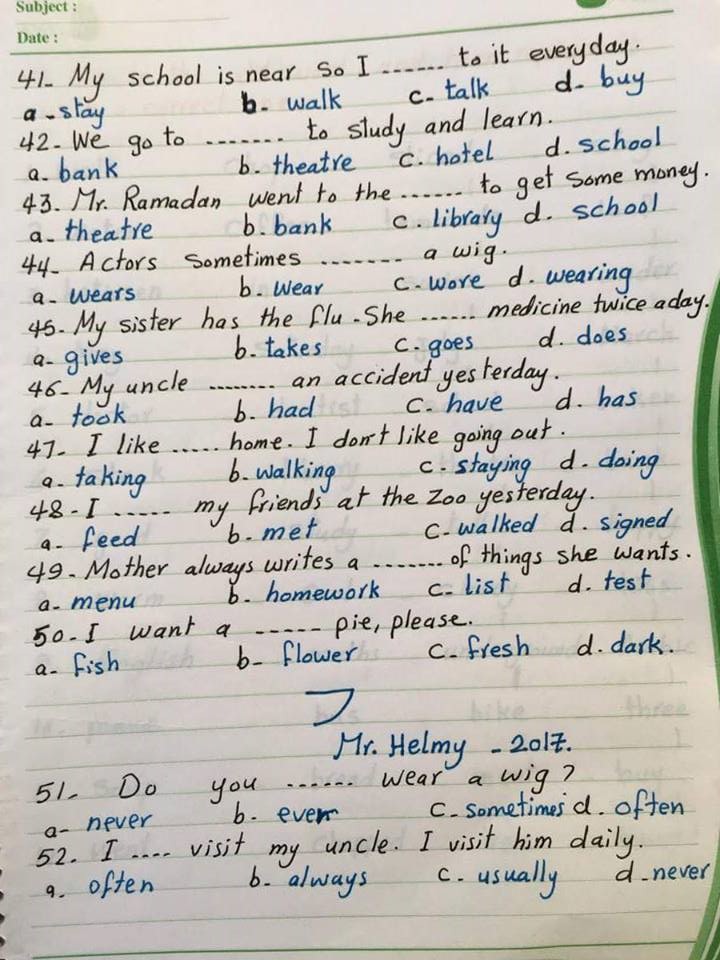 Subject :
Date :
41- My school is near so I ...... to it everyday.
a - stay b. walk c- talk d- buy
42- We go to ....... to study and learn.
a. bank b. theatre c. hotel d. school
43- Mr. Ramadan went to the ...... to get some money.
a- theatre b. bank c. library d. school
44- Actors sometimes ........ a wig.
a- wears b. wear c- wore d. wearing
45- My sister has the flu. She ...... medicine twice a day.
a- gives b- takes c. goes d. does
46- My uncle ........ an accident yesterday.
a- took b. had c. have d. has
47- I like ..... home. I don't like going out.
a- taking b- walking c. staying d. doing
48- I ...... my friends at the zoo yesterday.
a- feed b- met c- walked d. signed
49- Mother always writes a ....... of things she wants.
a- menu b- homework c- list d. test
50- I want a ------ pie, please.
a- fish b- flower c- fresh d. dark.
Mr. Helmy - 2017.
51- Do you ...... wear a wig ?
a- never b. ever c- sometimes d. often
52. I .... visit my uncle. I visit him daily.
a. often b. always c - usually d - never